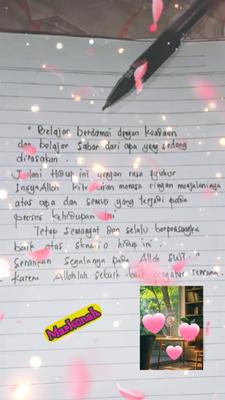 " Belajar berdamai dengan keadaan
dan belajar sabar dari apa yang sedang
dirasakan.
Jalani Hidup ini dengan rasa syukur
InsyaAlloh kita akan merasa ringan menjalaninya
atas apa dan semua yang terjadi pada
proses kehidupan ini
Tetap semangat dan selalu berprasangka
baik atas skenario hidup ini.
Serahkan segalanya pada Alloh SWT. "
Karena Allohlah sebaik-baik pengatur rencana.
Maskonah